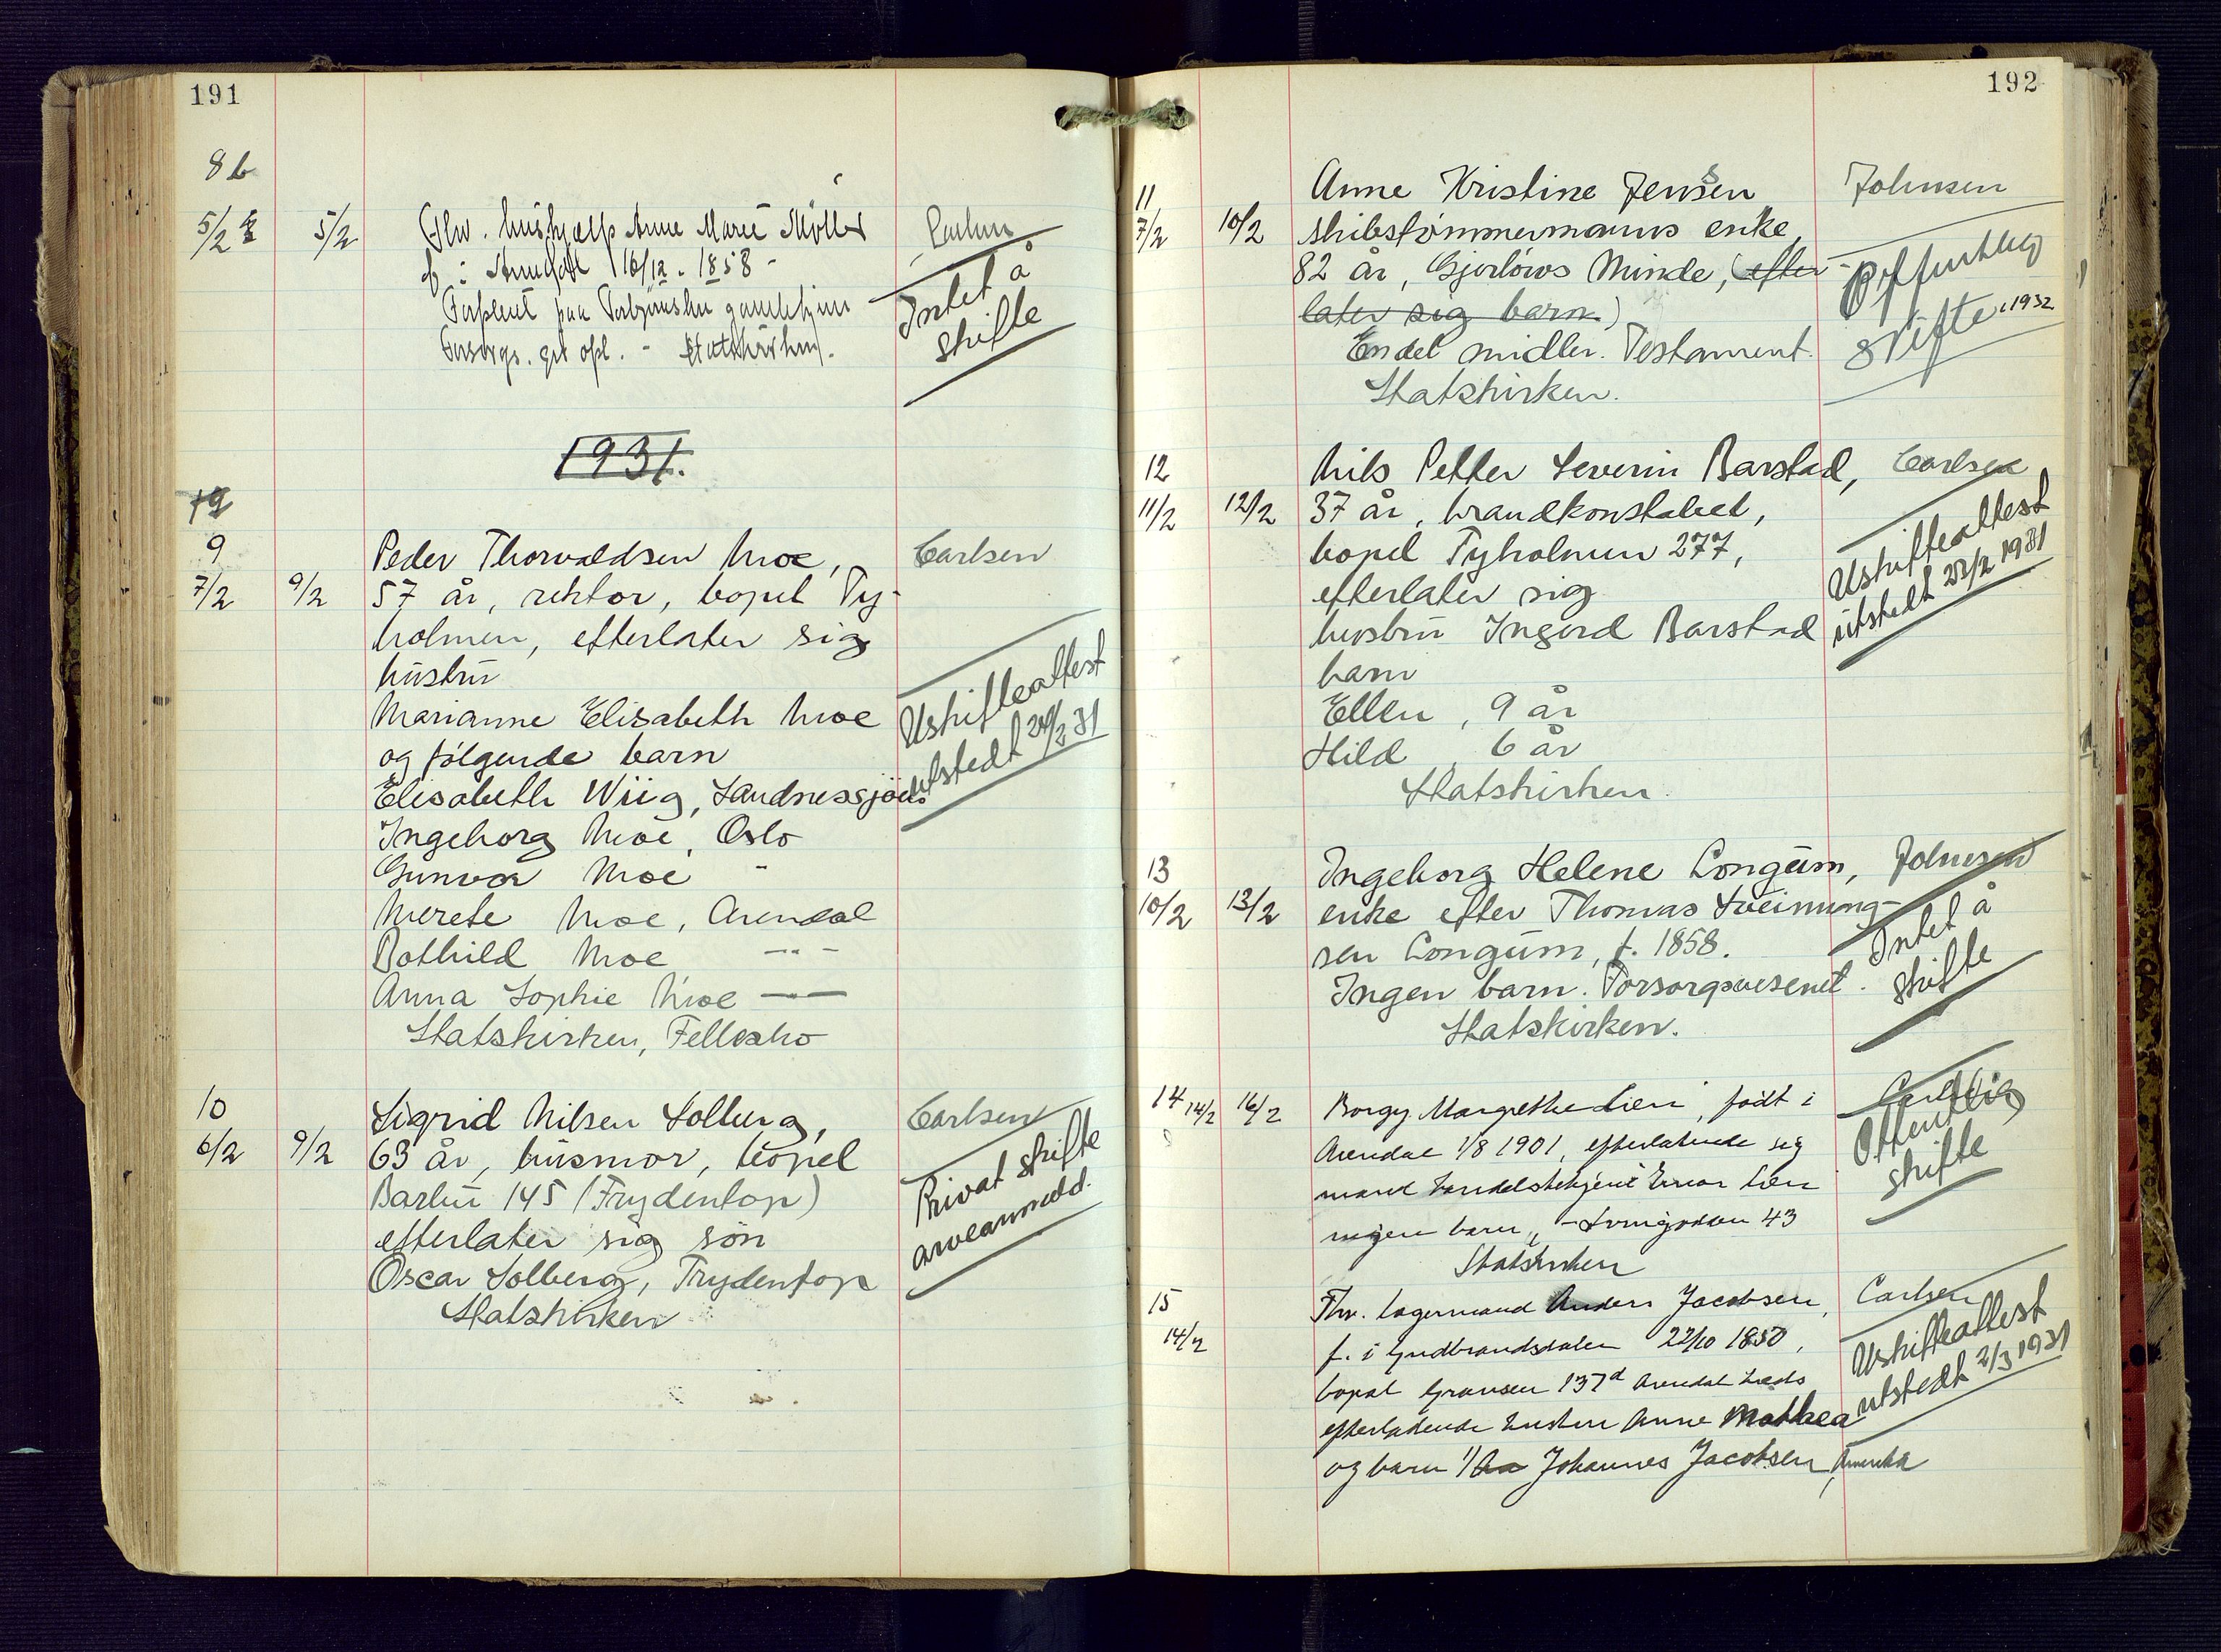 191
8b
5/2
5/2
Ghv. hushjelp Anne Marie Møller
f. i Arendal 16/12 - 1858 -
paa gamlehjem
Forsorgs. - Statskirken.
Carlsen
Intet å
skifte
1931.
9
7/2
9/2
Peder Thorvaldsen Moe,
57 år, rektor, bopel Ty-
holmen, efterlater sig
hustru
Marianne Elisabeth Moe
og følgende barn
Elisabeth Wiig, Sandnessjøen
Ingeborg Moe, Oslo
Gunvor Moe "
Merete Moe, Arendal
Bothild Moe —"—
Anna Sophie Moe —"—
Statskirken, Fellesbo
Carlsen
Uskifteattest
utstedt 24/2 31
10
6/2
9/2
Sigrid Nilsen Solberg,
63 år, husmor, bopel
Barbu 145 (Frydentop)
efterlater sig søn
Oscar Solberg, Frydentop
Statskirken
Carlsen
Privat skifte
arveanmeld.
192
11
7/2
10/2
Anne Kristine Jensen
skibstømmermanns enke,
82 år, Gjerløws Minde, (efter-
later sig barn.)
Endel midler. Testament.
Statskirken.
Johnsen
Offentlig
skifte 1932
12
11/2
12/2
Nils Petter Severin Barstad,
37 år, brandkonstabel,
bopel Tyholmen 277,
efterlater sig
hustru Ingerd Barstad
barn
Ellen, 9 år
Hild, 6 år
Statskirken.
Carlsen
Uskifteattest
utstedt 22/2 1931
13
10/2
13/2
Ingeborg Helene Longum,
enke efter Thomas Sveinung-
sen Longum, f. 1858.
Ingen barn. Forsorgsvesenet.
Statskirken.
Johnsen
Intet å
skifte
14
14/2
16/2
Borgy Margrethe Lien, født i
Arendal 1/8 1901, efterlatende sig
mand handelsbetjent Einar Lien
ingen barn, - 43
Statskirken
Carlsen
Offentlig
skifte
15
14/2
Fhv. lagermand Anders Jacobsen,
f. i Gudbrandsdalen 22/10 1850,
bopæl Gransen 137d Arendal
efterlatende hustru Anne Mathea
og barn 1) Johannes Jacobsen, Amerika
Carlsen
Uskifteattest
utstedt 2/3 1931